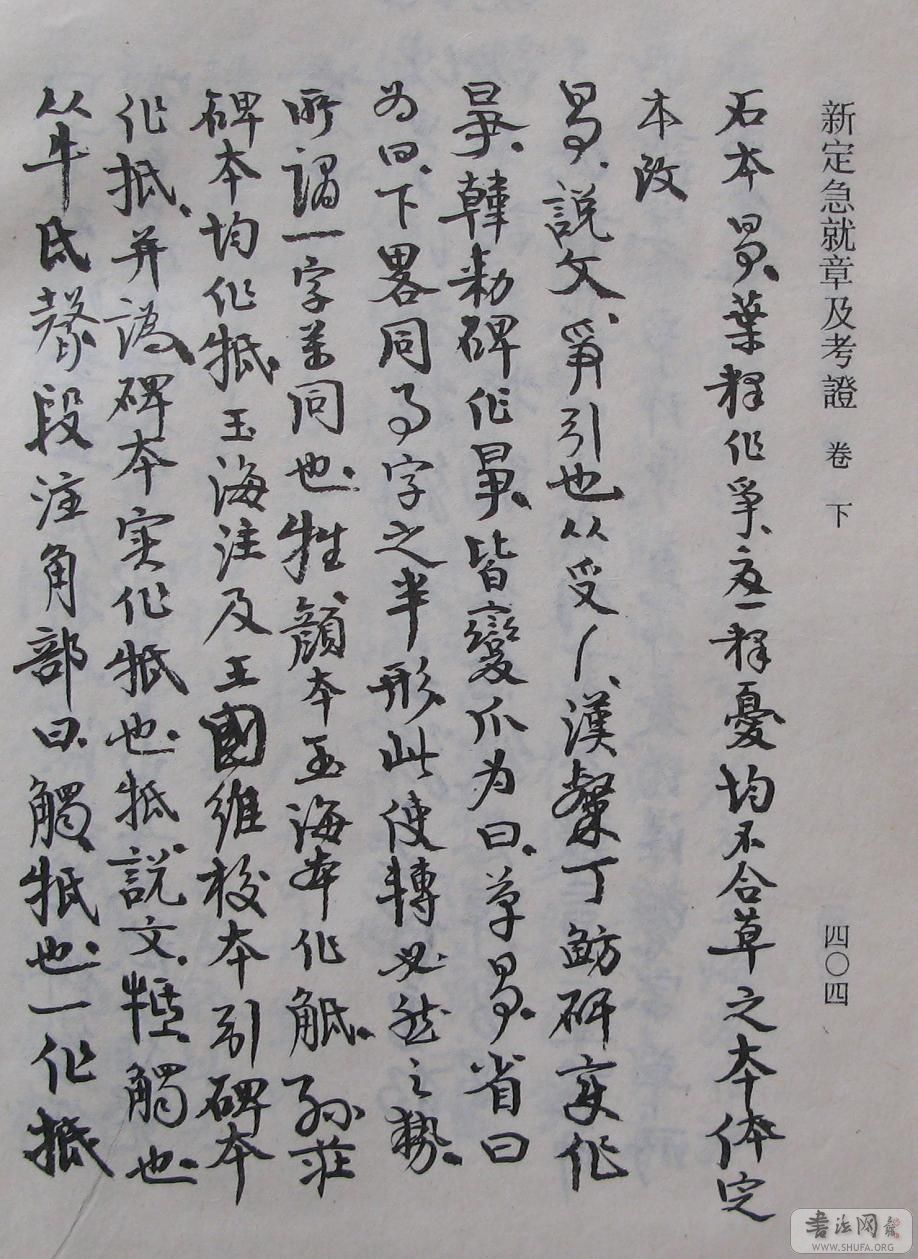 新定急就章及考證 卷下 四〇四
石本 葉釋作爭又一釋憂均不合草之本体定
本改
說文爭引也从受厂漢棼丁魴碑变作
韓勑碑作 皆變爪为曰草 省曰
为日下畧同 字之半形此使轉必然之勢
所謂一字萬同也牴顏本玉海本作觝孫莊
碑本均作牴玉海注及王國維校本引碑本
作抵并誤碑本实作牴也牴說文 觸也
从牛氐聲段注角部曰觸牴也一作抵
書法网
WWW.SHUFA.ORG